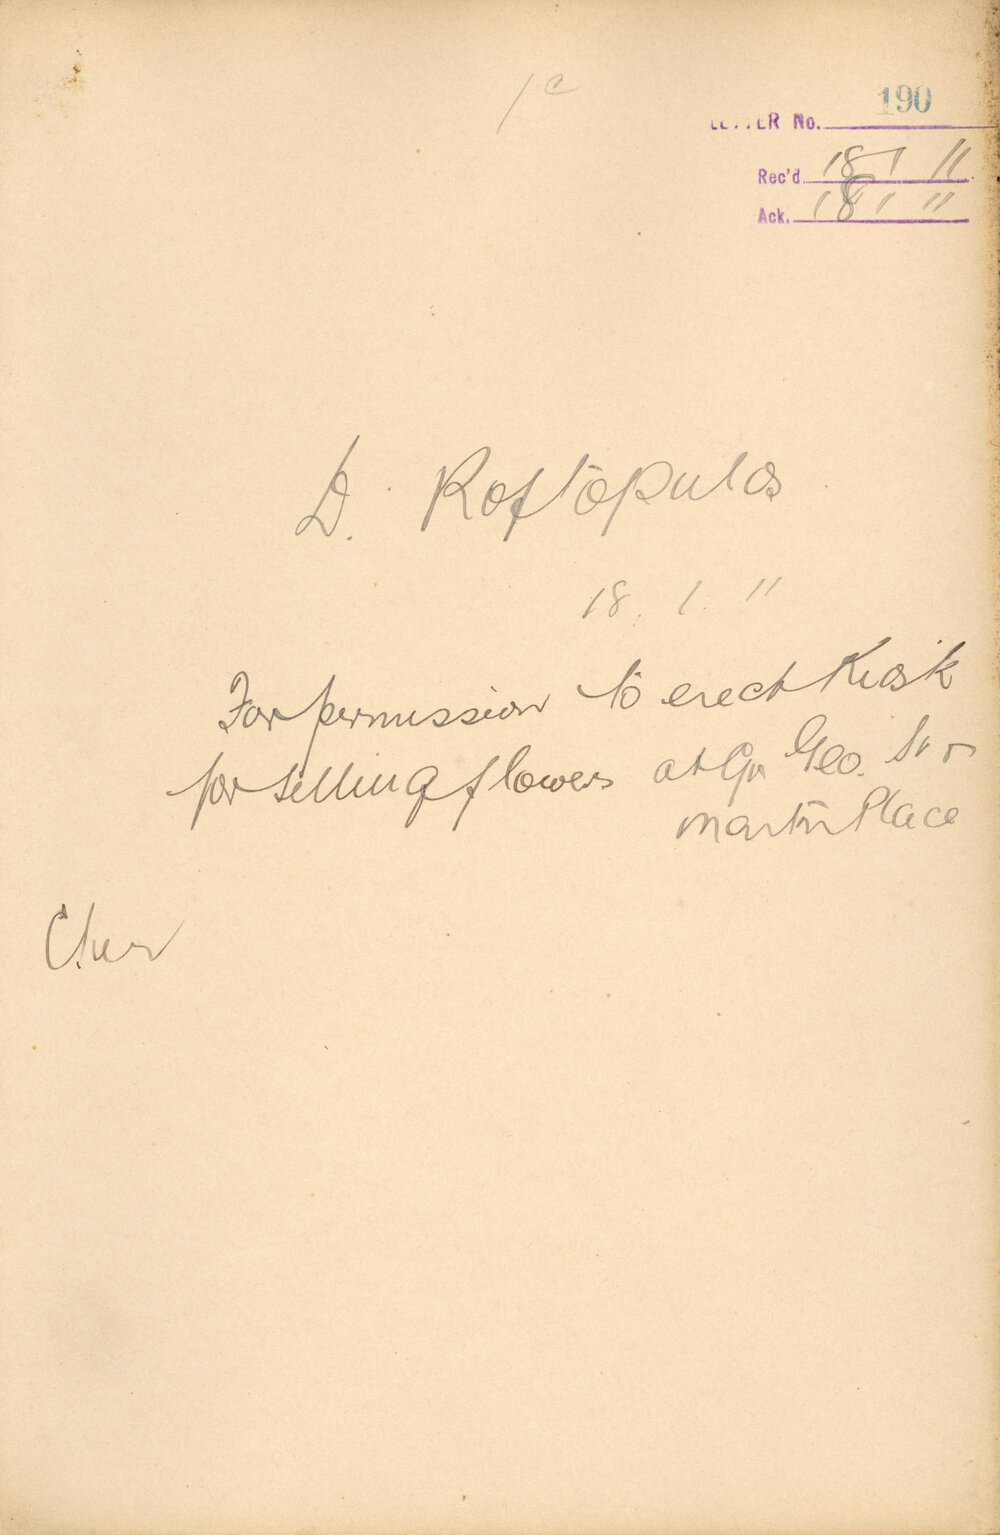 190
LETTER No.
Rec'd 18 1 11
Ack. 18 1 11
D. Roftopulos
18. 1. 11
For permission to erect Kiosk
for selling flowers at Cr Geo. St &
Martin Place